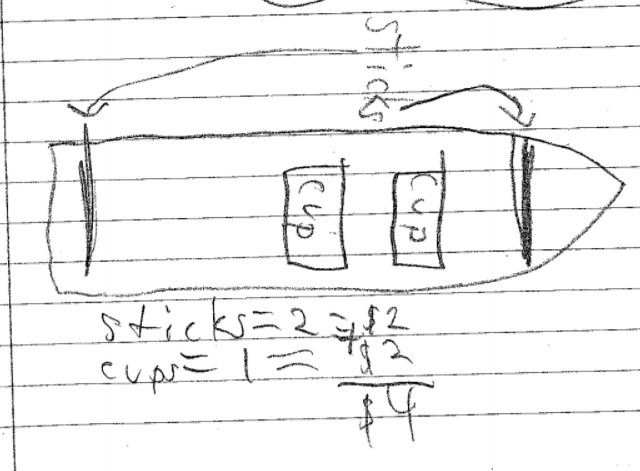 sticks
cup
cup
sticks = 2 = $2
cups = 1 = + $2
$4